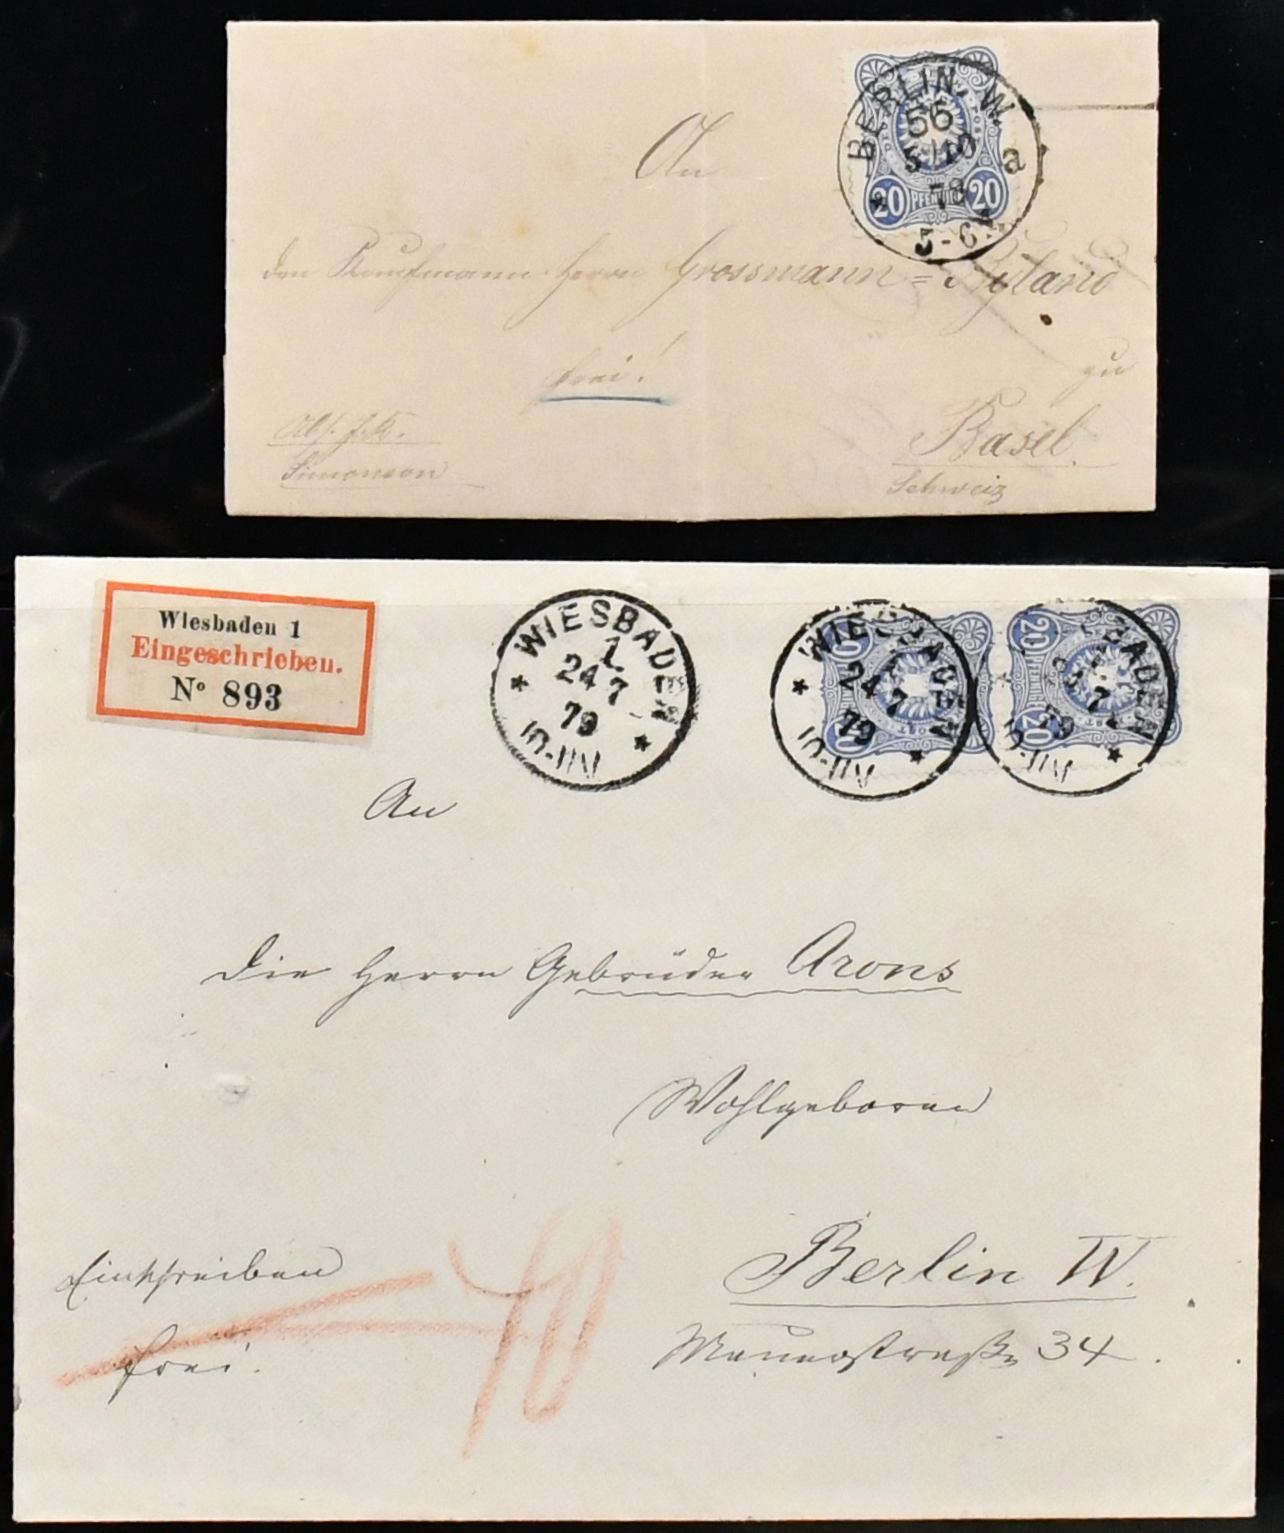 BERLIN, W.
56
5/10
a
78
5-6N
20 PFENNIG 20
An
den Kaufmann Herrn Grossmann = Ryland
frei!
zu
Basel.
Schweiz
Simonson
Wiesbaden 1
Eingeschrieben.
No 893
WIESBADEN
1
24 7
79
10-11V
WIESBADEN
24 7
79
10-11V
WIESBADEN
7
79
10-11V
20 PFENNIG 20
An
die Herrn Gebrüder Arons
Wohlgeboren
Einschreiben
frei.
40
Berlin W.
Mauerstraße 34.